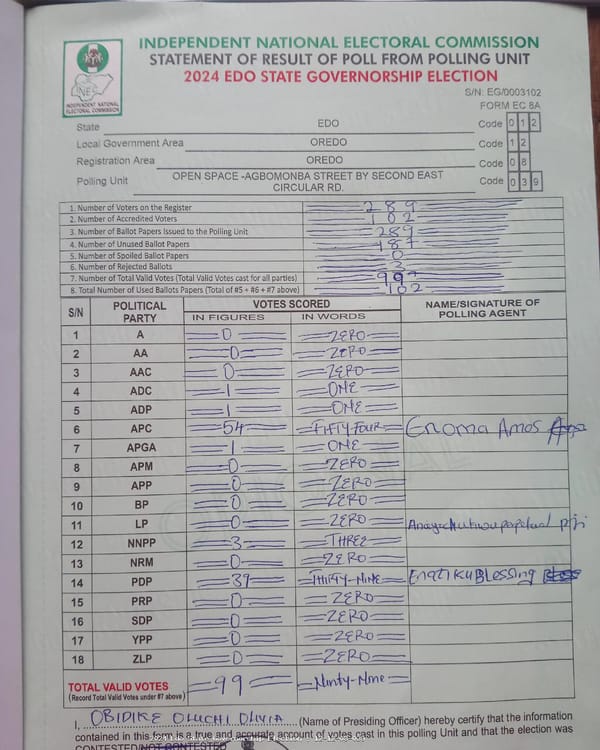 INDEPENDENT NATIONAL ELECTORAL COMMISSION
STATEMENT OF RESULT OF POLL FROM POLLING UNIT
2024 EDO STATE GOVERNORSHIP ELECTION
INEC
INDEPENDENT NATIONAL ELECTORAL COMMISSION
S/N: EG/0003102
FORM EC 8A
State EDO Code 0 1 2
Local Government Area OREDO Code 1 2
Registration Area OREDO Code 0 8
Polling Unit OPEN SPACE -AGBOMONBA STREET BY SECOND EAST CIRCULAR RD. Code 0 3 9
1. Number of Voters on the Register 289
2. Number of Accredited Voters 102
3. Number of Ballot Papers Issued to the Polling Unit 289
4. Number of Unused Ballot Papers 187
5. Number of Spoiled Ballot Papers 0
6. Number of Rejected Ballots 3
7. Number of Total Valid Votes (Total Valid Votes cast for all parties) 99
8. Total Number of Used Ballots Papers (Total of #5 + #6 + #7 above) 102
S/N POLITICAL PARTY VOTES SCORED NAME/SIGNATURE OF POLLING AGENT
IN FIGURES IN WORDS
1 A 0 ZERO
2 AA 0 ZERO
3 AAC 0 ZERO
4 ADC 1 ONE
5 ADP 1 ONE
6 APC 54 FIFTY-FOUR Enoma Amos
7 APGA 1 ONE
8 APM 0 ZERO
9 APP 0 ZERO
10 BP 0 ZERO
11 LP 0 ZERO
12 NNPP 3 THREE
13 NRM 0 ZERO
14 PDP 39 THIRTY-NINE Blessing
15 PRP 0 ZERO
16 SDP 0 ZERO
17 YPP 0 ZERO
18 ZLP 0 ZERO
TOTAL VALID VOTES 99 Ninty-Nine
(Record Total Valid Votes under #7 above)
I, OBIDIKE OLUCHI OLIVIA (Name of Presiding Officer) hereby certify that the information
contained in this form is a true and accurate account of votes cast in this polling Unit and that the election was
CONTESTED/NOT CONTESTED